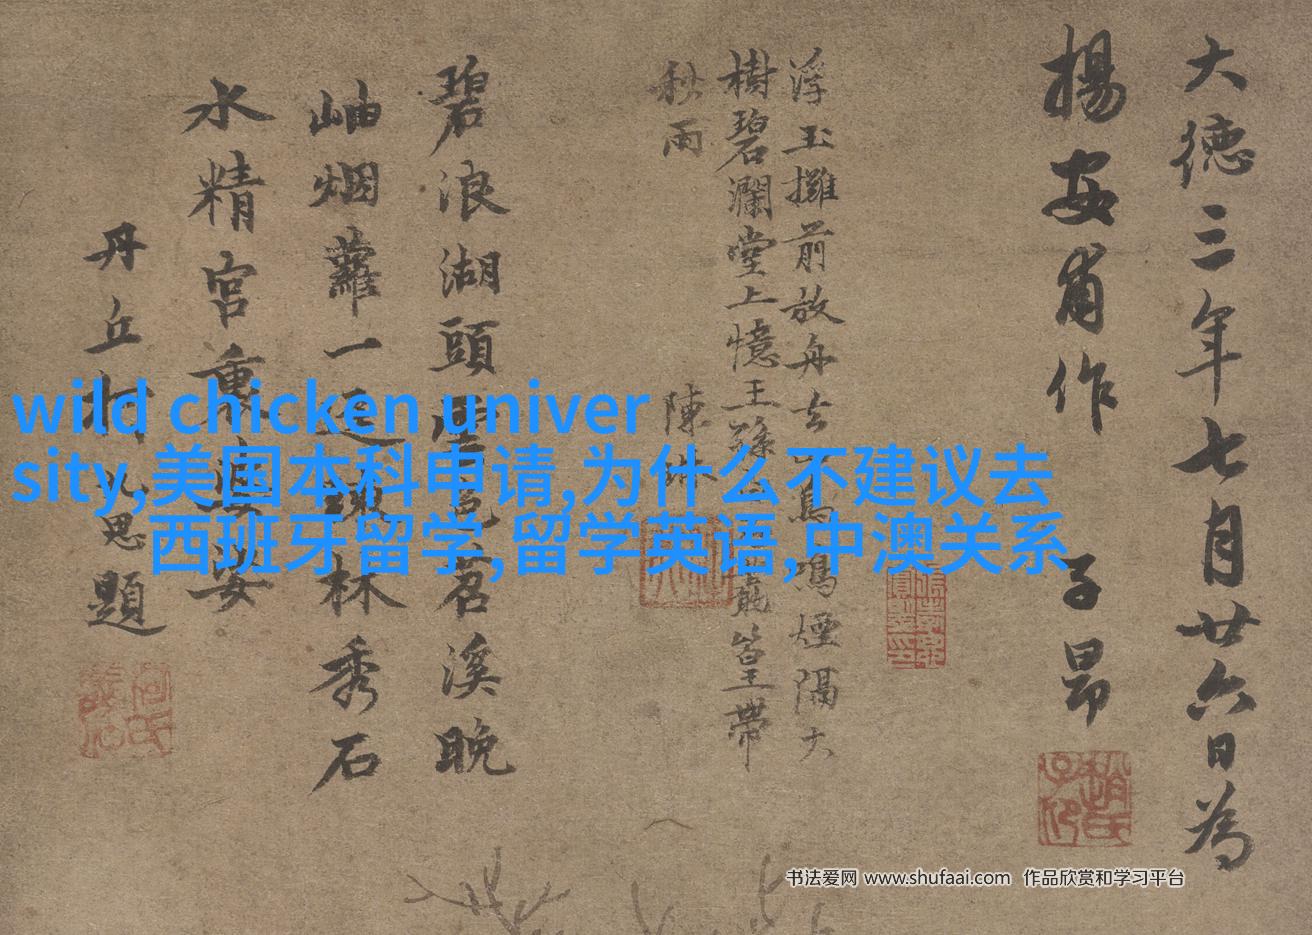 大德三年七月廿六日為
揚安甫作
子昂
浮玉攤前放舟去 鳴煙隔大
樹碧瀾堂上憶王孫 篁帶
秋雨
陳琳
碧浪湖頭 苕溪晚
岫烟蘿一 林秀石
水精宮裏
丹丘柯九思題
wild chicken univer
sity,美国本科申请,为什么不建议去
西班牙留学,留学英语,中澳关系
书法爱网 www.shufaai.com 作品欣赏和学习平台